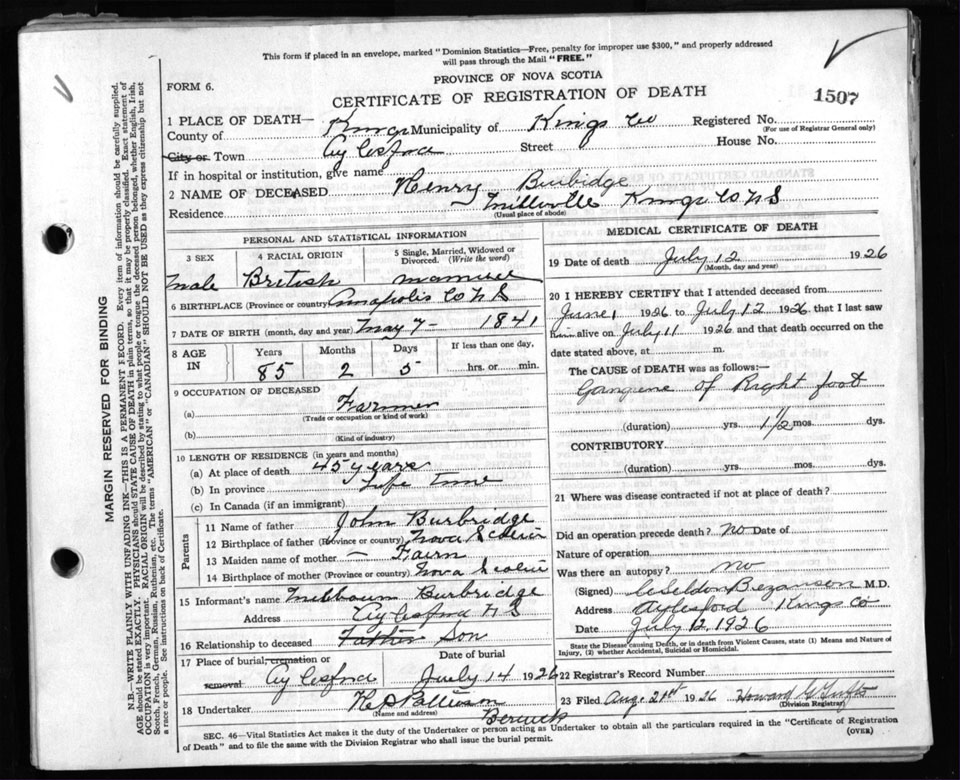 This form if placed in an envelope, marked "Dominion Statistics—Free, penalty for improper use $300," and properly addressed
will pass through the Mail "FREE."
PROVINCE OF NOVA SCOTIA
FORM 6.
CERTIFICATE OF REGISTRATION OF DEATH
1507
1 PLACE OF DEATH—
County of Kings Municipality of Kings Co Registered No.
(For use of Registrar General only)
City or Town Aylesford Street House No.
If in hospital or institution, give name
2 NAME OF DECEASED Henry Burbidge
Residence Millville Kings Co N S
(Usual place of abode)
PERSONAL AND STATISTICAL INFORMATION
3 SEX 4 RACIAL ORIGIN 5 Single, Married, Widowed or Divorced. (Write the word)
Male British
6 BIRTHPLACE (Province or country) Annapolis Co N S
7 DATE OF BIRTH (month, day and year) May 7- 1841
8 AGE IN Years Months Days If less than one day,
85 2 5 hrs. or min.
9 OCCUPATION OF DECEASED
(a) Farmer
(Trade or occupation or kind of work)
(b)
(Kind of industry)
10 LENGTH OF RESIDENCE (in years and months)
(a) At place of death 45 years
(b) In province Life Time
(c) In Canada (if an immigrant)
Parents
11 Name of father John Burbridge
12 Birthplace of father (Province or country) Nova Scotia
13 Maiden name of mother — Fairn
14 Birthplace of mother (Province or country) Nova Scotia
15 Informant's name Burbridge
Address Aylesford N S
16 Relationship to deceased Father Son
17 Place of burial, cremation or Date of burial
removal Aylesford July 14 1926
18 Undertaker
(Name and address)
Berwick
MEDICAL CERTIFICATE OF DEATH
19 Date of death July 12 1926
(Month, day and year)
20 I HEREBY CERTIFY that I attended deceased from
June 1 1926 to July 12 1926, that I last saw
him alive on July 11 1926, and that death occurred on the
date stated above, at m.
The CAUSE OF DEATH was as follows:—
Gangrene of Right foot
(duration) yrs. 1½ mos. dys.
CONTRIBUTORY
(duration) yrs. mos. dys.
21 Where was disease contracted if not at place of death?
Did an operation precede death? No Date of
Nature of operation
Was there an autopsy? no
(Signed) Seldon Bezanson M.D.
Address Aylesford Kings Co
Date July 12 1926
State the Disease causing Death, or in death from Violent Causes, state (1) Means and Nature of
Injury, (2) whether Accidental, Suicidal or Homicidal.
22 Record Number
23 Filed Aug. 21st 1926 Howard G Tufts
(Division Registrar)
SEC. 46—Vital Statistics Act makes it the duty of the Undertaker or person acting as Undertaker to obtain all the particulars required in the "Certificate of Registration
of Death" and to file the same with the Division Registrar who shall issue the burial permit.
(OVER)
MARGIN RESERVED FOR BINDING
N.B.—WRITE PLAINLY WITH UNFADING INK—THIS IS A PERMANENT RECORD. Every item of information should be carefully supplied.
AGE should be stated EXACTLY. PHYSICIANS should STATE CAUSE OF DEATH in plain terms, so that it may be properly classified. Exact statement of
OCCUPATION is very important. RACIAL ORIGIN will be described by stating to what people or tongue the deceased person belonged, whether English, Irish,
Scotch, French, German, Russian, Ruthenian, etc. The terms "AMERICAN" or "CANADIAN" SHOULD NOT BE USED as they express citizenship but not
a race or people. See instructions on back of Certificate.